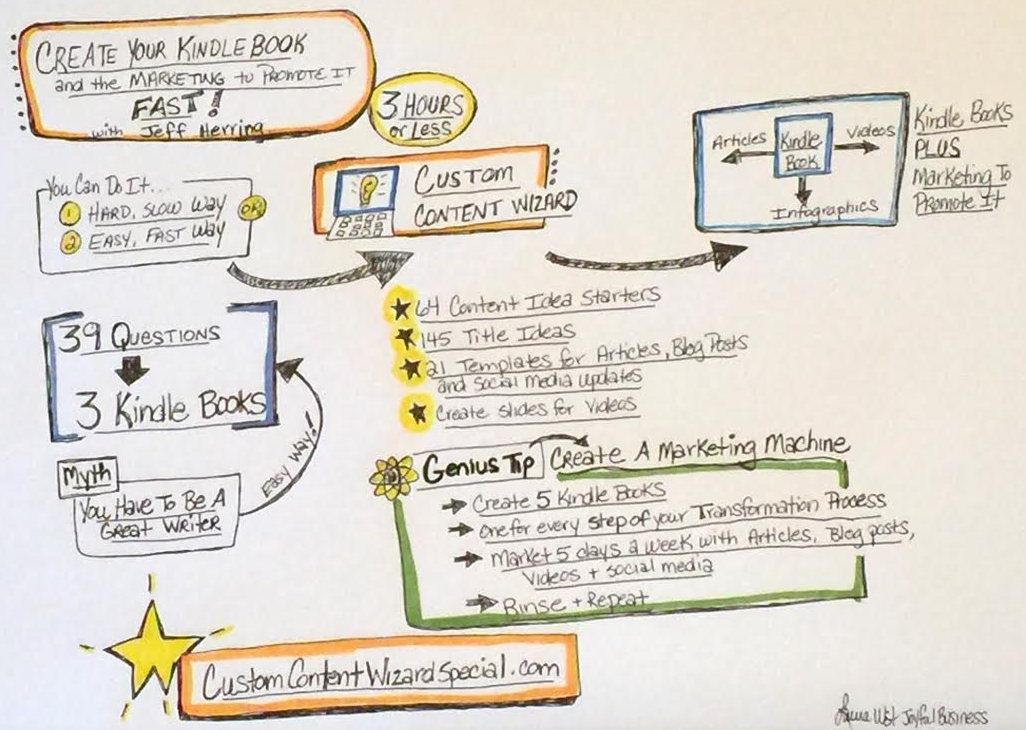 CREATE YOUR KINDLE BOOK
and the MARKETING to PROMOTE IT
FAST!
with Jeff Herring
3 HOURS
or Less
You Can Do It...
1 HARD, SLOW WAY
OR
2 EASY, FAST WAY
CUSTOM
CONTENT WIZARD
Articles
Kindle
Book
Videos
Infographics
Kindle Books
PLUS
Marketing To
Promote It
39 QUESTIONS
3 Kindle Books
Easy Way!
Myth
You Have To Be A
Great Writer
64 Content Idea Starters
145 Title Ideas
21 Templates for Articles, Blog Posts
and social media updates
Create slides for Videos
Genius Tip
Create A Marketing Machine
Create 5 Kindle Books
One for every step of your Transformation Process
Market 5 days a week with Articles, Blog posts,
Videos + social media
Rinse + Repeat
CustomContentWizardSpecial.com
Joyful Business